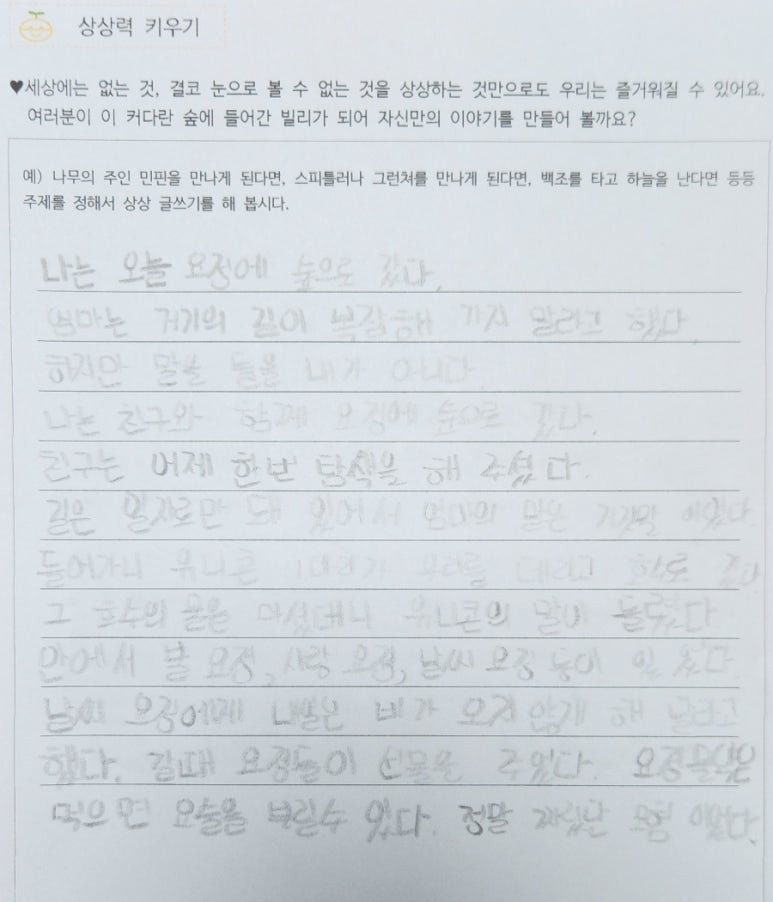 상상력 키우기
♥세상에는 없는 것, 결코 눈으로 볼 수 없는 것을 상상하는 것만으로도 우리는 즐거워질 수 있어요.
여러분이 이 커다란 숲에 들어간 빌리가 되어 자신만의 이야기를 만들어 볼까요?
예) 나무의 주인 민핀을 만나게 된다면, 스피틀러나 그런쳐를 만나게 된다면, 백조를 타고 하늘을 난다면 등등
주제를 정해서 상상 글쓰기를 해 봅시다.
나는 오늘 요정에 숲으로 갔다.
엄마는 거기의 길이 복잡해 가지 말라고 했다.
하지만 말을 들을 내가 아니다.
나는 친구와 함께 요정에 숲으로 갔다.
친구는 어제 한번 탐색을 해 주셨다.
길은 일자로만 돼 있어서 엄마의 말은 거짓말 이었다.
들어가니 유니콘 1마리가 우리를 데리고 갔다
그 호수의 물을 마셨더니 유니콘의 말이 들렸다.
안에서 불 요정, 사랑 요정, 날씨 요정 등이 있었다.
날씨 요정에게 내일은 비가 오지 않게 해 달라고
했다. 갈때 요정들이 선물을 주었다. 요정
먹으면 요술을 부릴수 있다. 정말 모험 이었다.